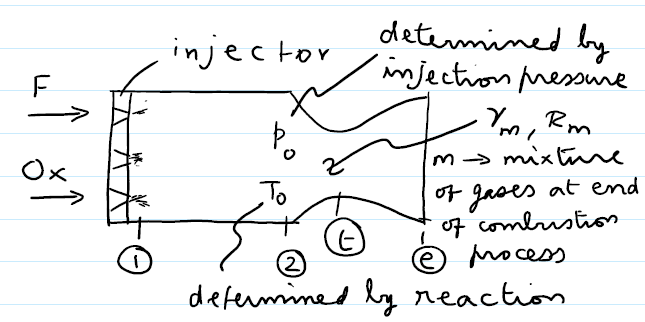 injector
determined by
injection pressure
F
Ox
p₀
T₀
2
γm, Rm
m → mixture
of gases at end
of combustion
process
1
2
t
e
determined by reaction